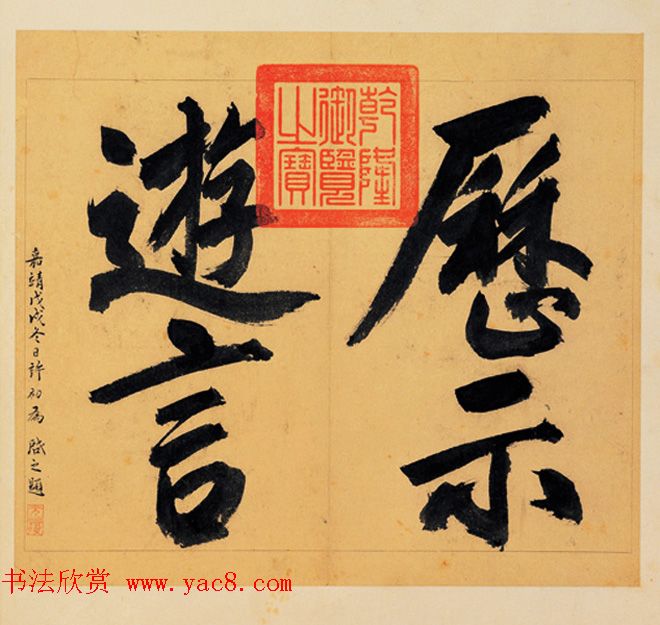 歷示
遊言
乾隆
御覽
之寶
嘉靖戊戌冬日許初為 啟之題
书法欣赏 www.yac8.com